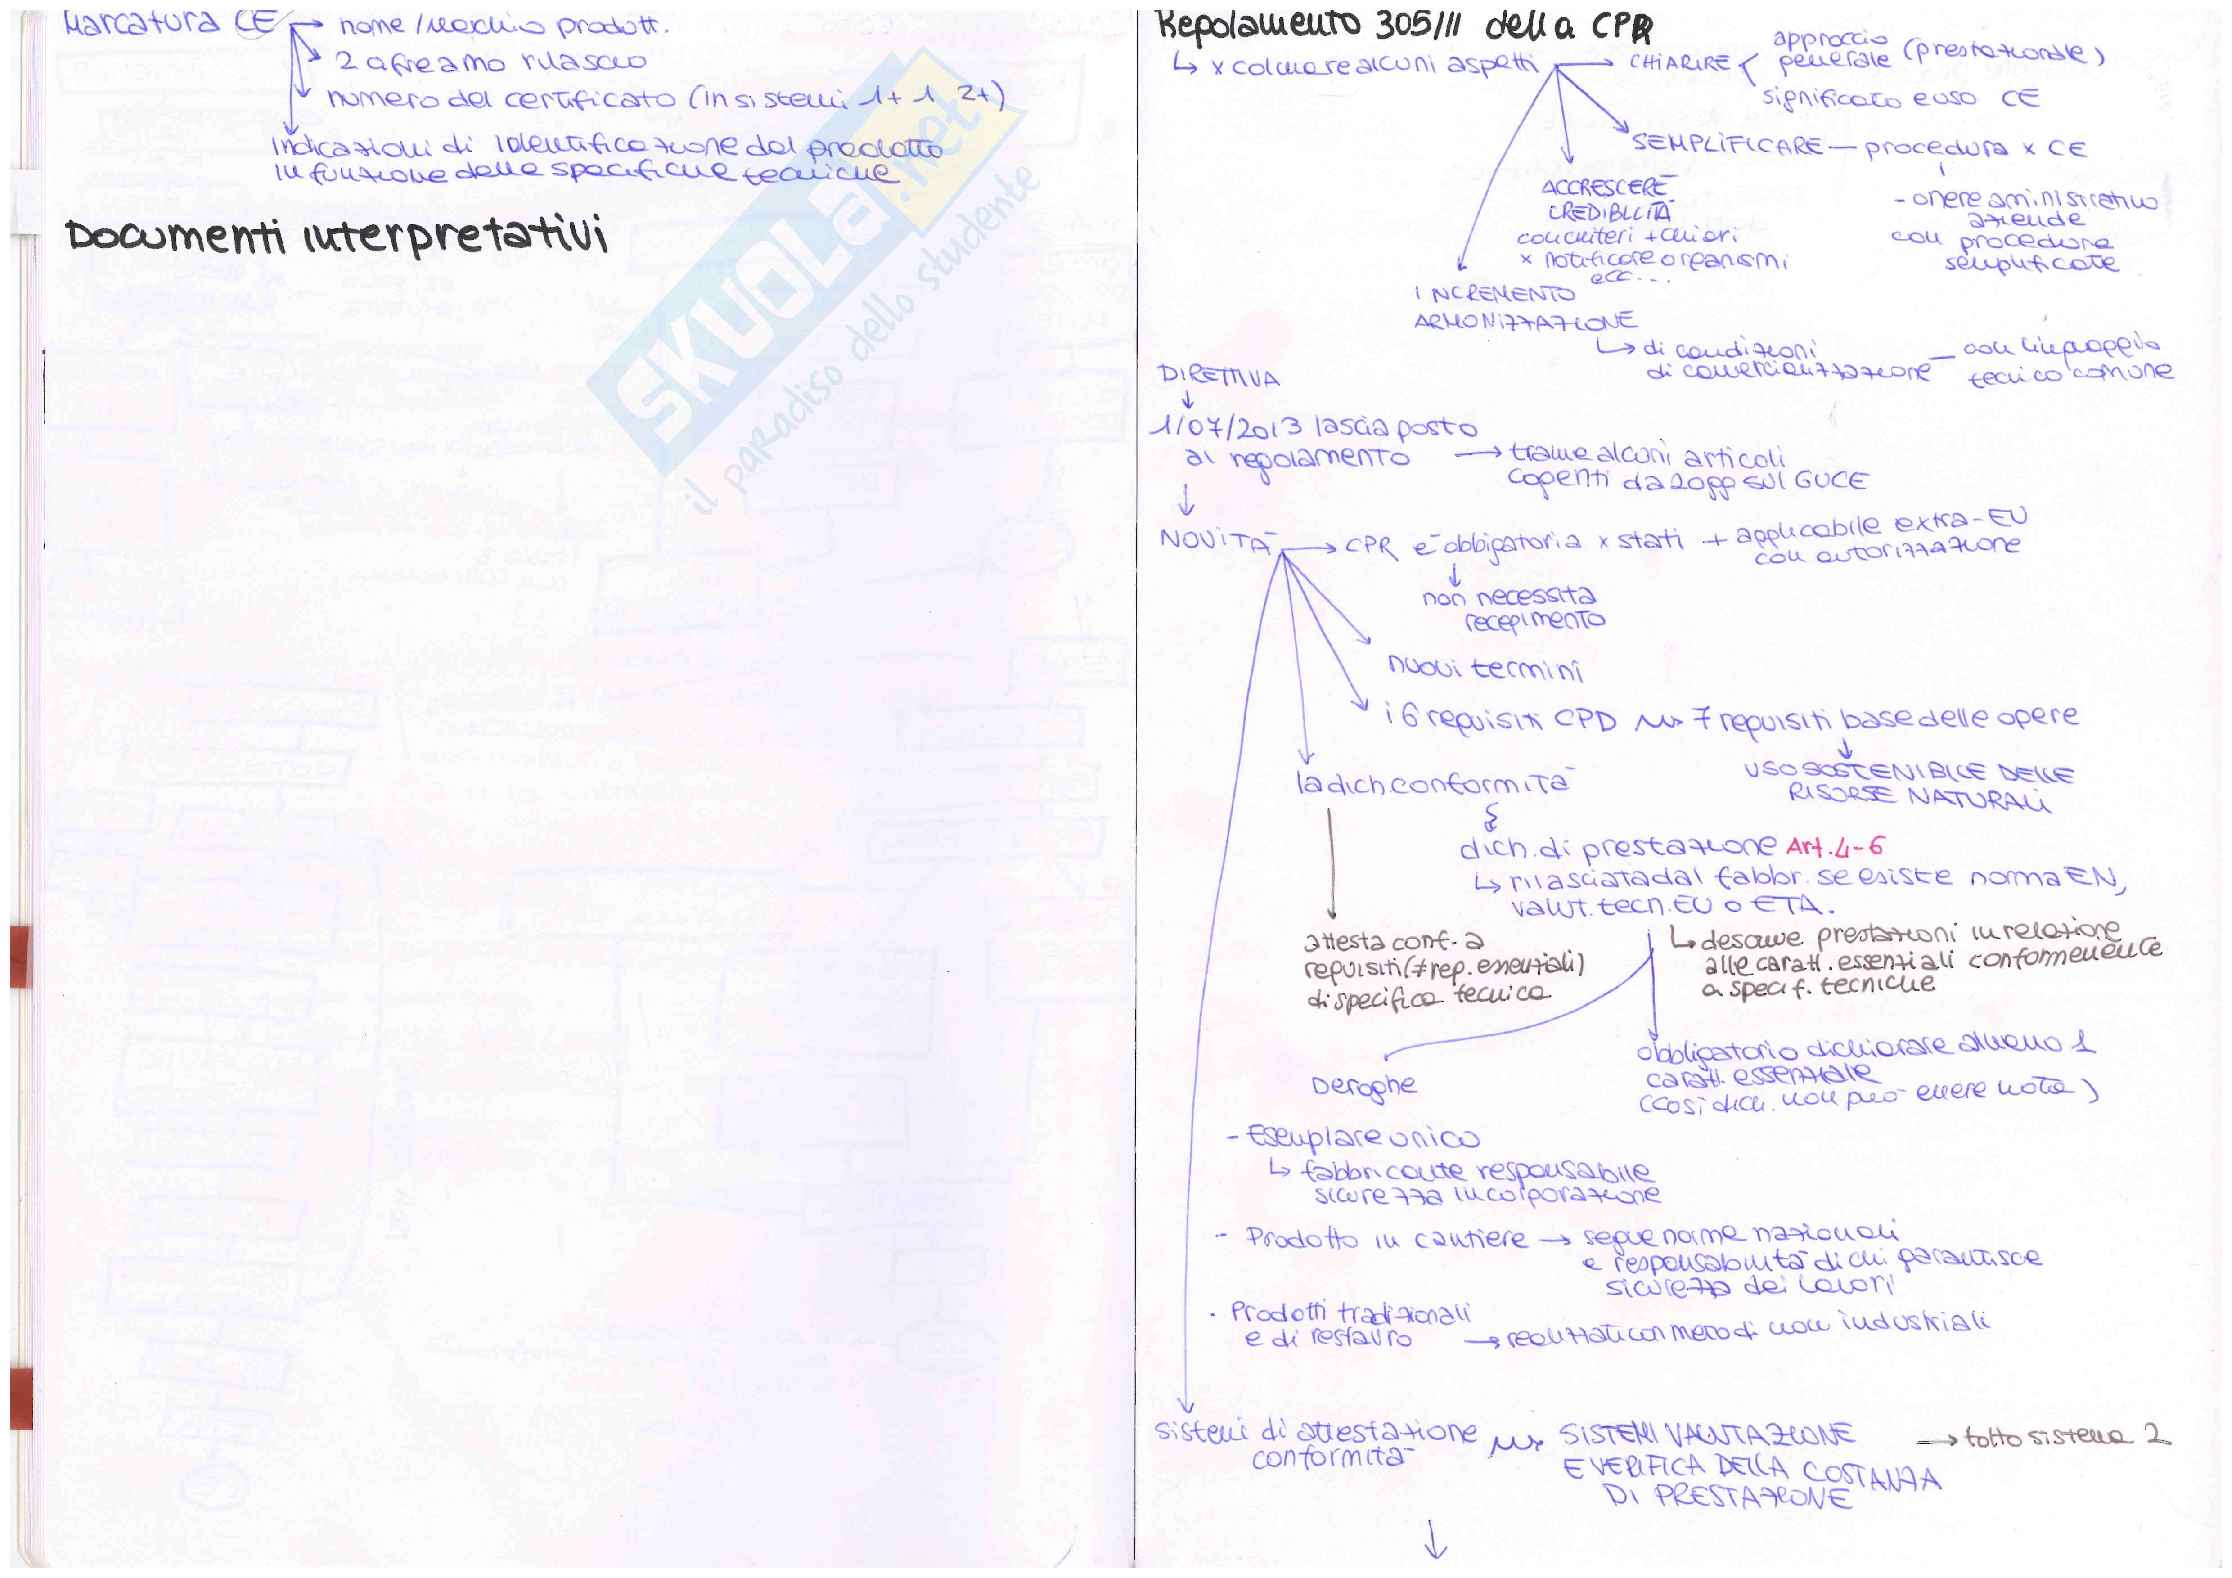 Marcatura CE → nome/marchio produtt.
2 cifre anno rilascio
numero del certificato (in sistemi 1+ 1 2+)
Indicazioni di identificazione del prodotto
in funzione delle specifiche tecniche
Documenti interpretativi
SKUOLA.net
il paradiso dello studente
Regolamento 305/11 della CPR
↳ x colmare alcuni aspetti → CHIARIRE < approccio generale (prestazionale)
significato e uso CE
SEMPLIFICARE — procedura x CE
- onere amministrativo
aziende
con procedure
semplificate
ACCRESCERE
CREDIBILITÀ
con criteri + chiari
x notificare organismi
ecc...
INCREMENTO
ARMONIZZAZIONE
↳ di condizioni
di commercializzazione — con linguaggio
tecnico comune
DIRETTIVA
↓
1/07/2013 lascia posto
al regolamento → tranne alcuni articoli
cogenti da 20gg sul GUCE
↓
NOVITÀ → CPR è obbligatoria x stati + applicabile extra-EU
con autorizzazione
↓
non necessita
recepimento
nuovi termini
i 6 requisiti CPD → 7 requisiti base delle opere
↓
USO SOSTENIBILE DELLE
RISORSE NATURALI
la dich. conformità
dich. di prestazione Art. 4-6
↳ rilasciata dal fabbr. se esiste norma EN,
valut. tecn. EU o ETA.
attesta conf. a
requisiti (≠ req. essenziali)
di specifica tecnica
↳ descrive prestazioni in relazione
alle caratt. essenziali conformemente
a specif. tecniche
obbligatorio dichiarare almeno 1
caratt. essenziale
(così dich. non può essere nulla)
Deroghe
- Esemplare unico
↳ fabbricante responsabile
sicurezza incorporazione
- Prodotto in cantiere → segue norme nazionali
e responsabilità di chi garantisce
sicurezza dei lavori
- Prodotti tradizionali
e di restauro → realizzati con metodi non industriali
sistemi di attestazione
conformità → SISTEMI VALUTAZIONE
E VERIFICA DELLA COSTANZA
DI PRESTAZIONE → tolto sistema 2
↓